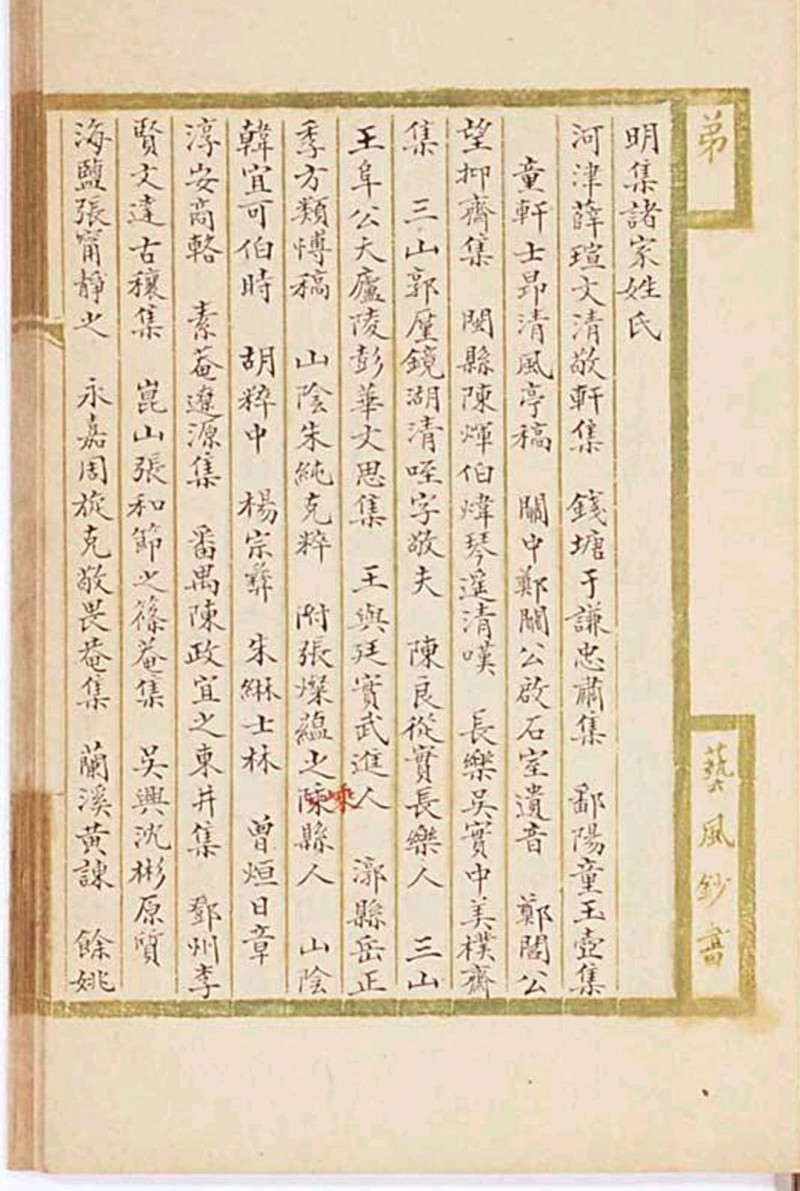 弟
藝風鈔書
明集諸家姓氏
河津薛瑄文清敬軒集 錢塘于謙忠肅集 鄱陽童玉壺集
童軒士昂清風亭稿 關中鄭關公啟石室遺音 鄭閣公
望抑齋集 閩縣陳煇伯煒琴邊清嘆 長樂吳實中美樸齋
集 三山郭厪鏡湖清唑字敬夫 陳良從實長樂人 三山
王阜公大廬陵彭華文思集 王與廷實武進人 漷縣岳正
季方類博稿 山陰朱純克粹 附張燦蘊之陳嵊縣人 山陰
韓宜可伯時 胡粹中 楊宗彝 朱綝士林 曾烜日章
淳安高輅 素菴遼源集 番禺陳政宜之東井集 鄧州李
賢文達古穰集 崑山張和節之篠菴集 吳興沈彬原質
海鹽張甯靜之 永嘉周旋克敬畏菴集 蘭溪黃諫 餘姚